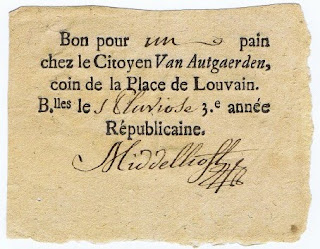 Bon pour un pain
chez le Citoyen Van Autgaerden,
coin de la Place de Louvain.
B.lles le 1 Pluviose 3.e année
Républicaine.
Middelhoff